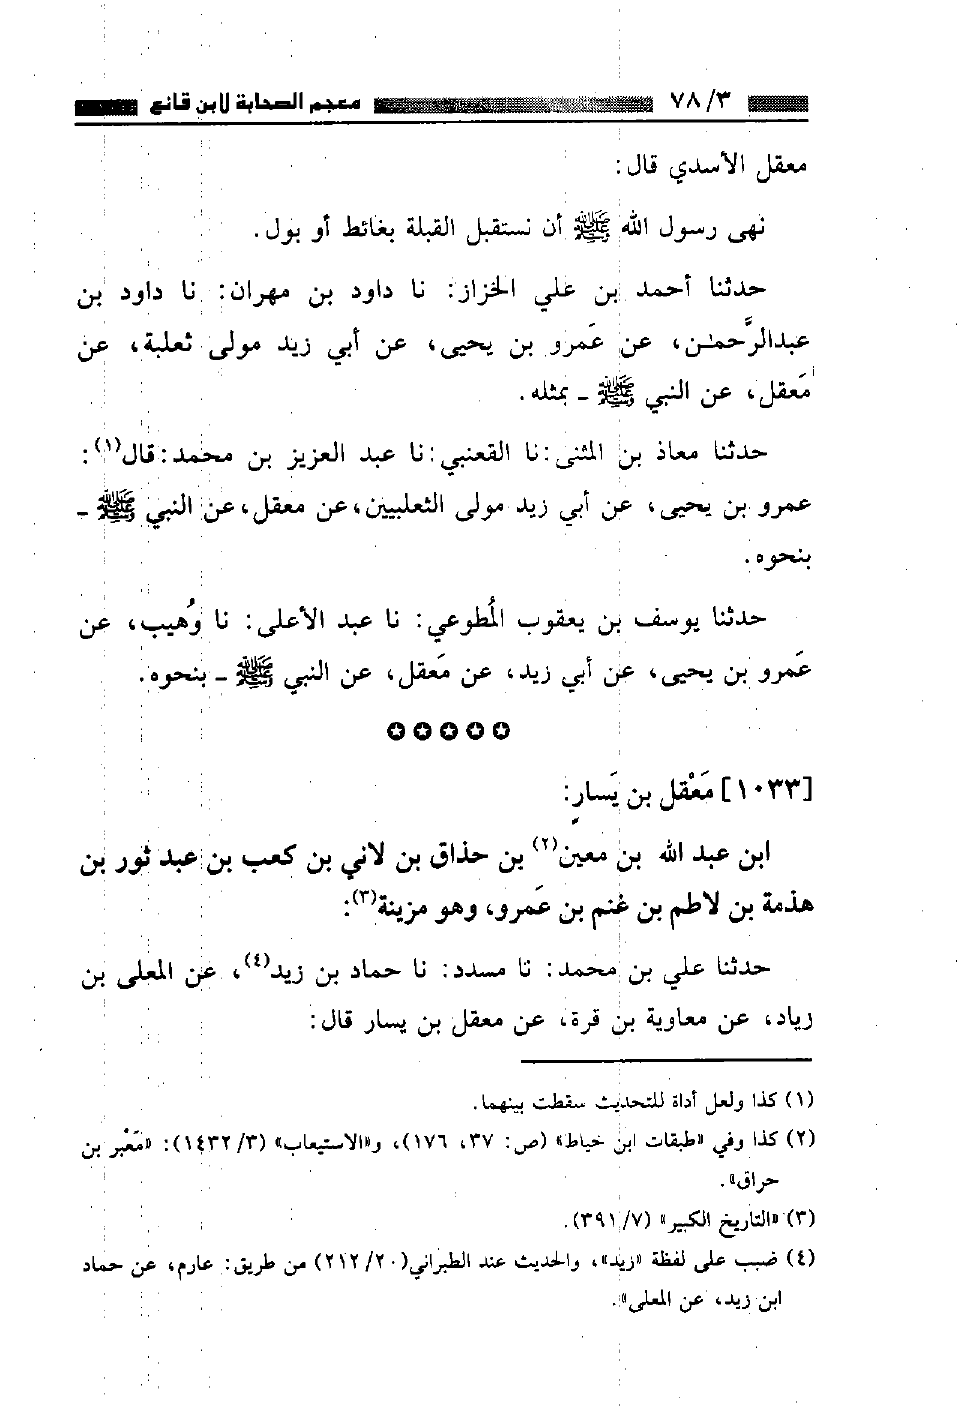 ٧٨/٣ معجم الصحابة لابن قانع
معقل الأسدي قال:
نهى رسول الله ﷺ أن نستقبل القبلة بغائط أو بول.
حدثنا أحمد بن علي الخزاز: نا داود بن مهران: نا داود بن
عبدالرَّحمٰن، عن عَمرو بن يحيى، عن أبي زيد مولى ثعلبة، عن
مَعقل، عن النبي ﷺ ـ بمثله.
حدثنا معاذ بن المثنى: نا القعنبي: نا عبد العزيز بن محمد: قال(١):
عمرو بن يحيى، عن أبي زيد مولى الثعلبيين، عن معقل، عن النبي ﷺ ـ
بنحوه.
حدثنا يوسف بن يعقوب المُطوعي: نا عبد الأعلى: نا وُهيب، عن
عَمرو بن يحيى، عن أبي زيد، عن مَعقل، عن النبي ﷺ ـ بنحوه.
✪✪✪✪✪
[١٠٣٣] مَعْقل بن يَسارٍ:
ابن عبد الله بن معين(٢) بن حذاق بن لاني بن كعب بن عبد ثور بن
هذمة بن لاطم بن غنم بن عَمرو، وهو مزينة(٣):
حدثنا علي بن محمد: نا مسدد: نا حماد بن زيد(٤)، عن المعلى بن
زياد، عن معاوية بن قرة، عن معقل بن يسار قال:
(١) كذا ولعل أداة للتحديث سقطت بينهما.
(٢) كذا وفي «طبقات ابن خياط» (ص: ٣٧، ١٧٦)، و«الاستيعاب» (١٤٣٢/٣): «مَعْبر بن
حراق».
(٣) «التاريخ الكبير» (٣٩١/٧).
(٤) ضبب على لفظة «زيد»، والحديث عند الطبراني(٢١٢/٢٠) من طريق: عارم، عن حماد
ابن زيد، عن المعلى».